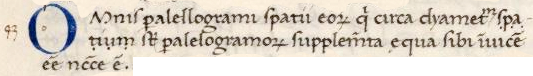 93 OMnis palellogrami spatii eoꝝ q̃ circa dyametrꝫ spa-
tium sͭ palelogramoꝝ supplem̃ta equa sibi ĩuicẽ
eẽ nccẽ ẽ.